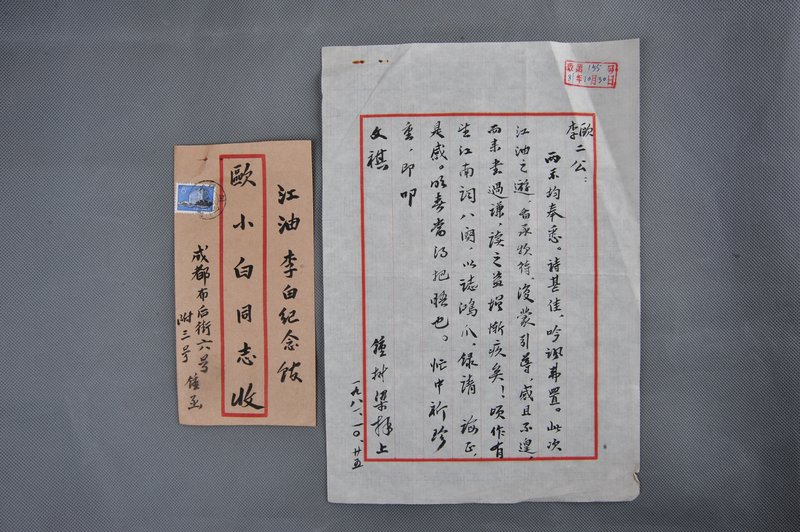 江油李白紀念馆
歐小白同志收
成都布后街六号
附三号 鍾函
歐李二公：
兩示均奉悉。詩甚佳，吟諷弗置。此次
江油之遊，承款待，復蒙引導，感且不遑，
而来書過謙，读之益增惭疚矣！頃作有
望江南词八阕，以誌鴻爪，録請 诲正，
是感。明春當得把晤也。忙中祈珍
重，即叩
文祺
鍾树梁拜上
一九八一、一〇、廿五
155号
81年10月30日